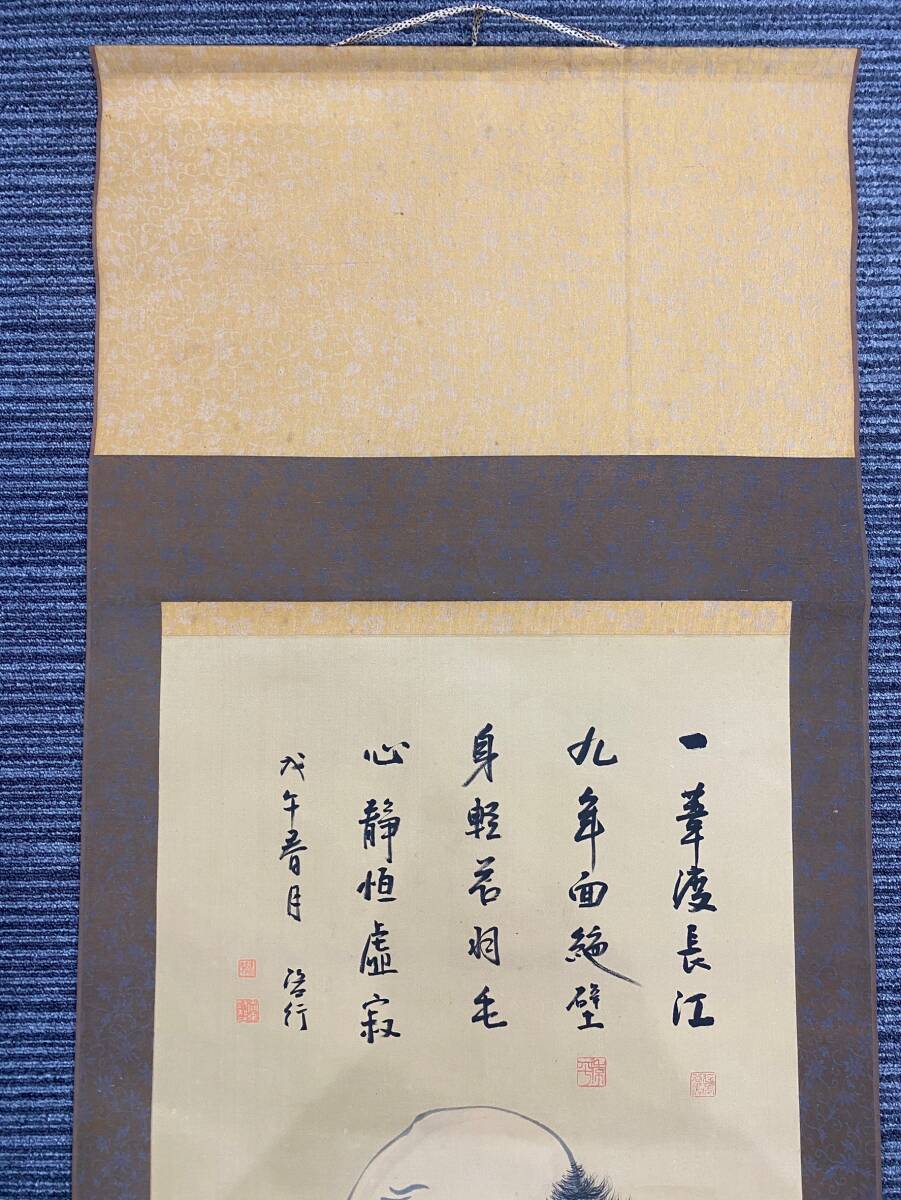 一葦渡長江
九年面絶壁
身軽若羽毛
心静恒虚寂
戊午春月 啓行